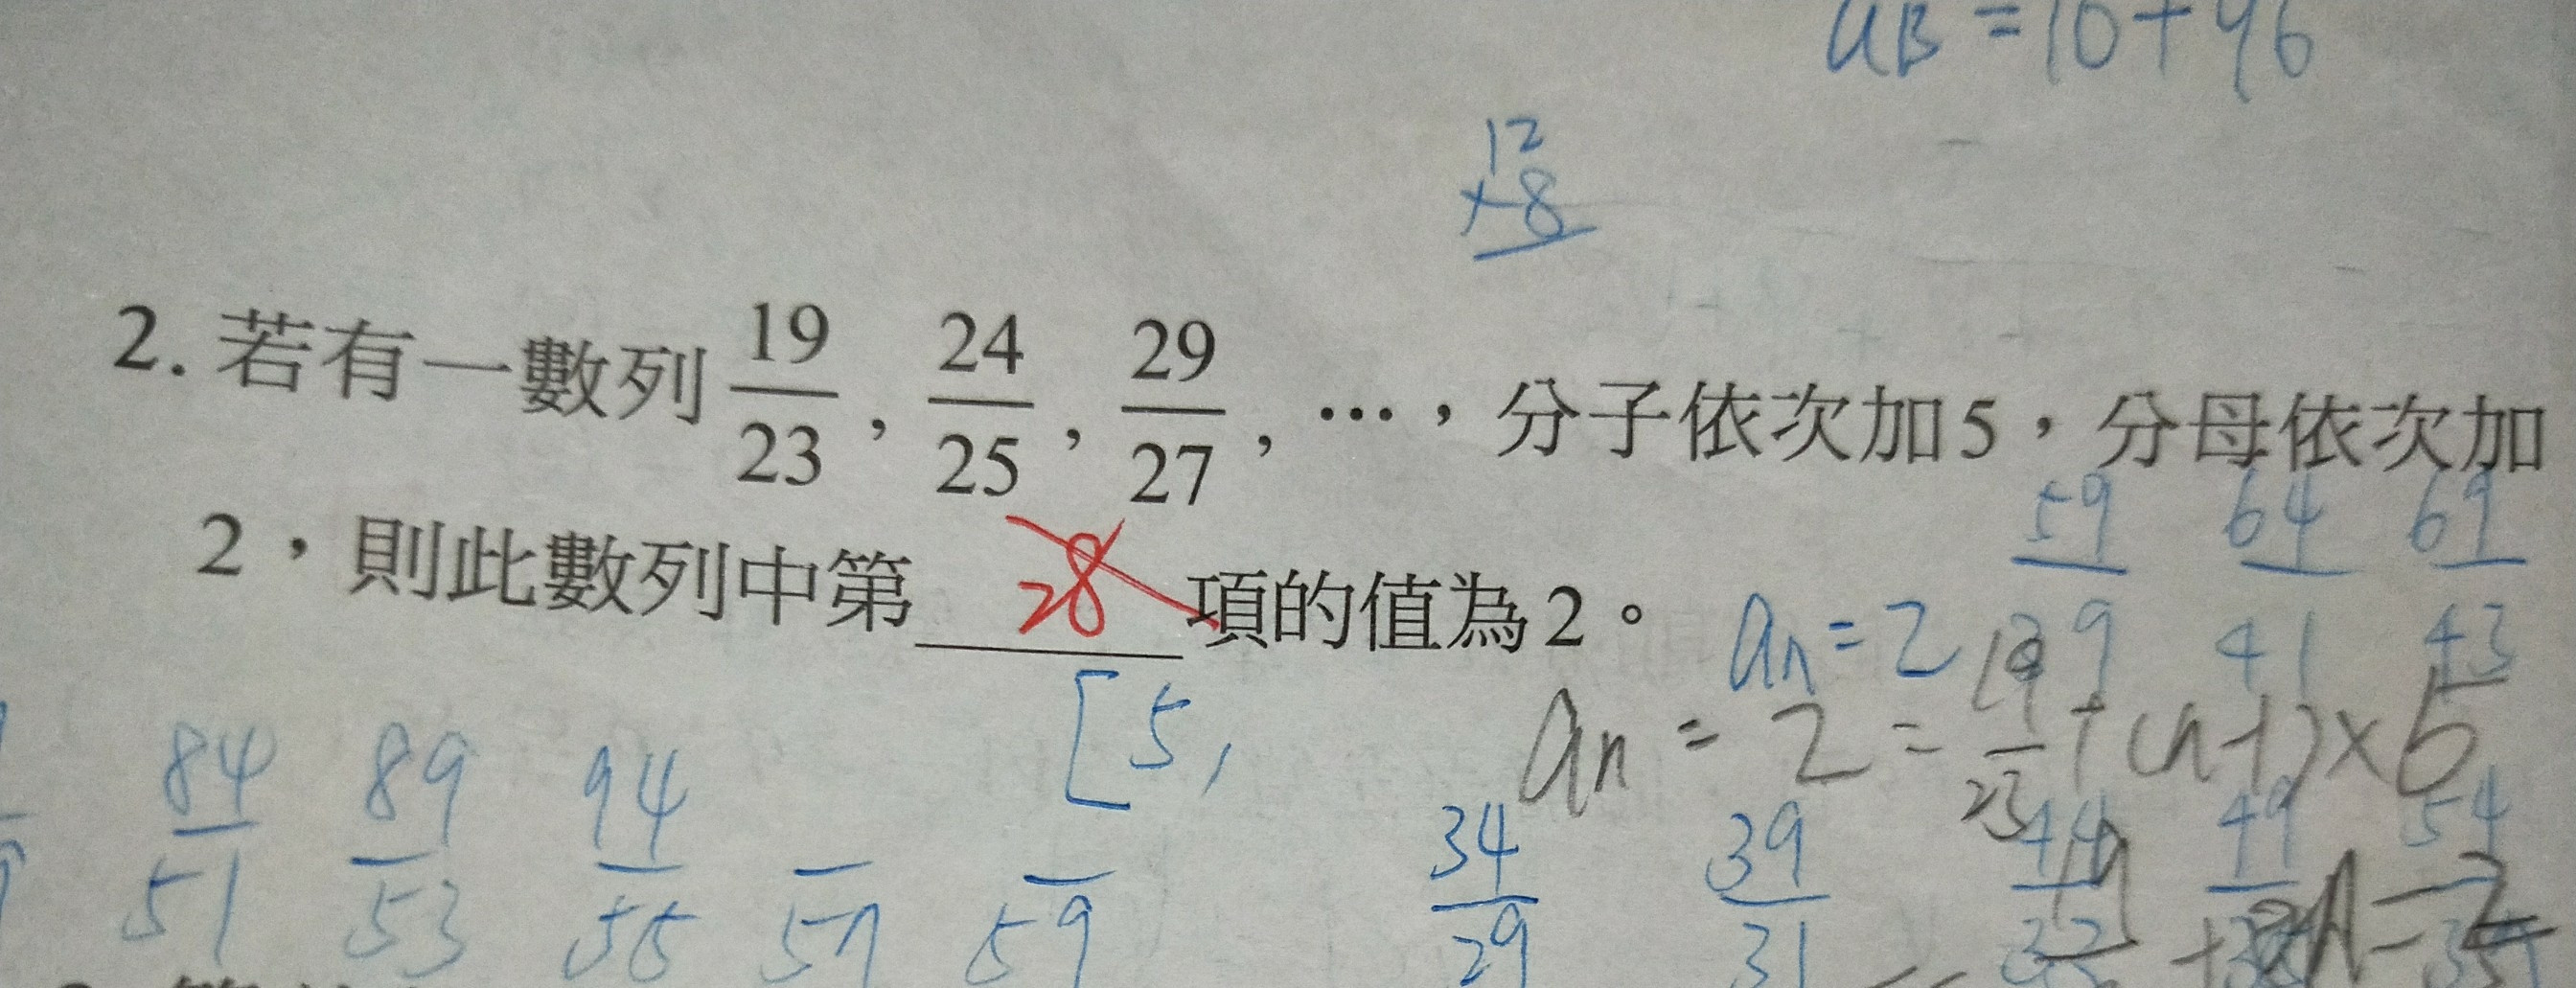 aB = 10 + 96
12
×8
2. 若有一數列 19/23, 24/25, 29/27, …,分子依次加5,分母依次加
2,則此數列中第 28 項的值為2。
59 64 69
39 41 43
an = 2
an = 2 = 19/23 + (n-1)×5
[5,
84/51 89/53 94/55 —/57 —/59
34/29 39/31
44 49 54